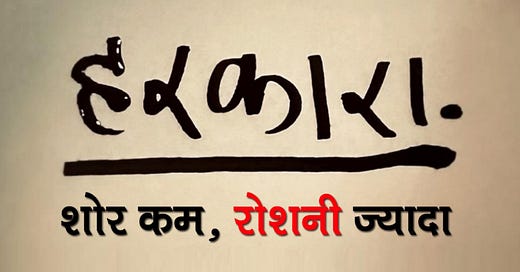 हरकारा.
शोर कम, रोशनी ज्यादा